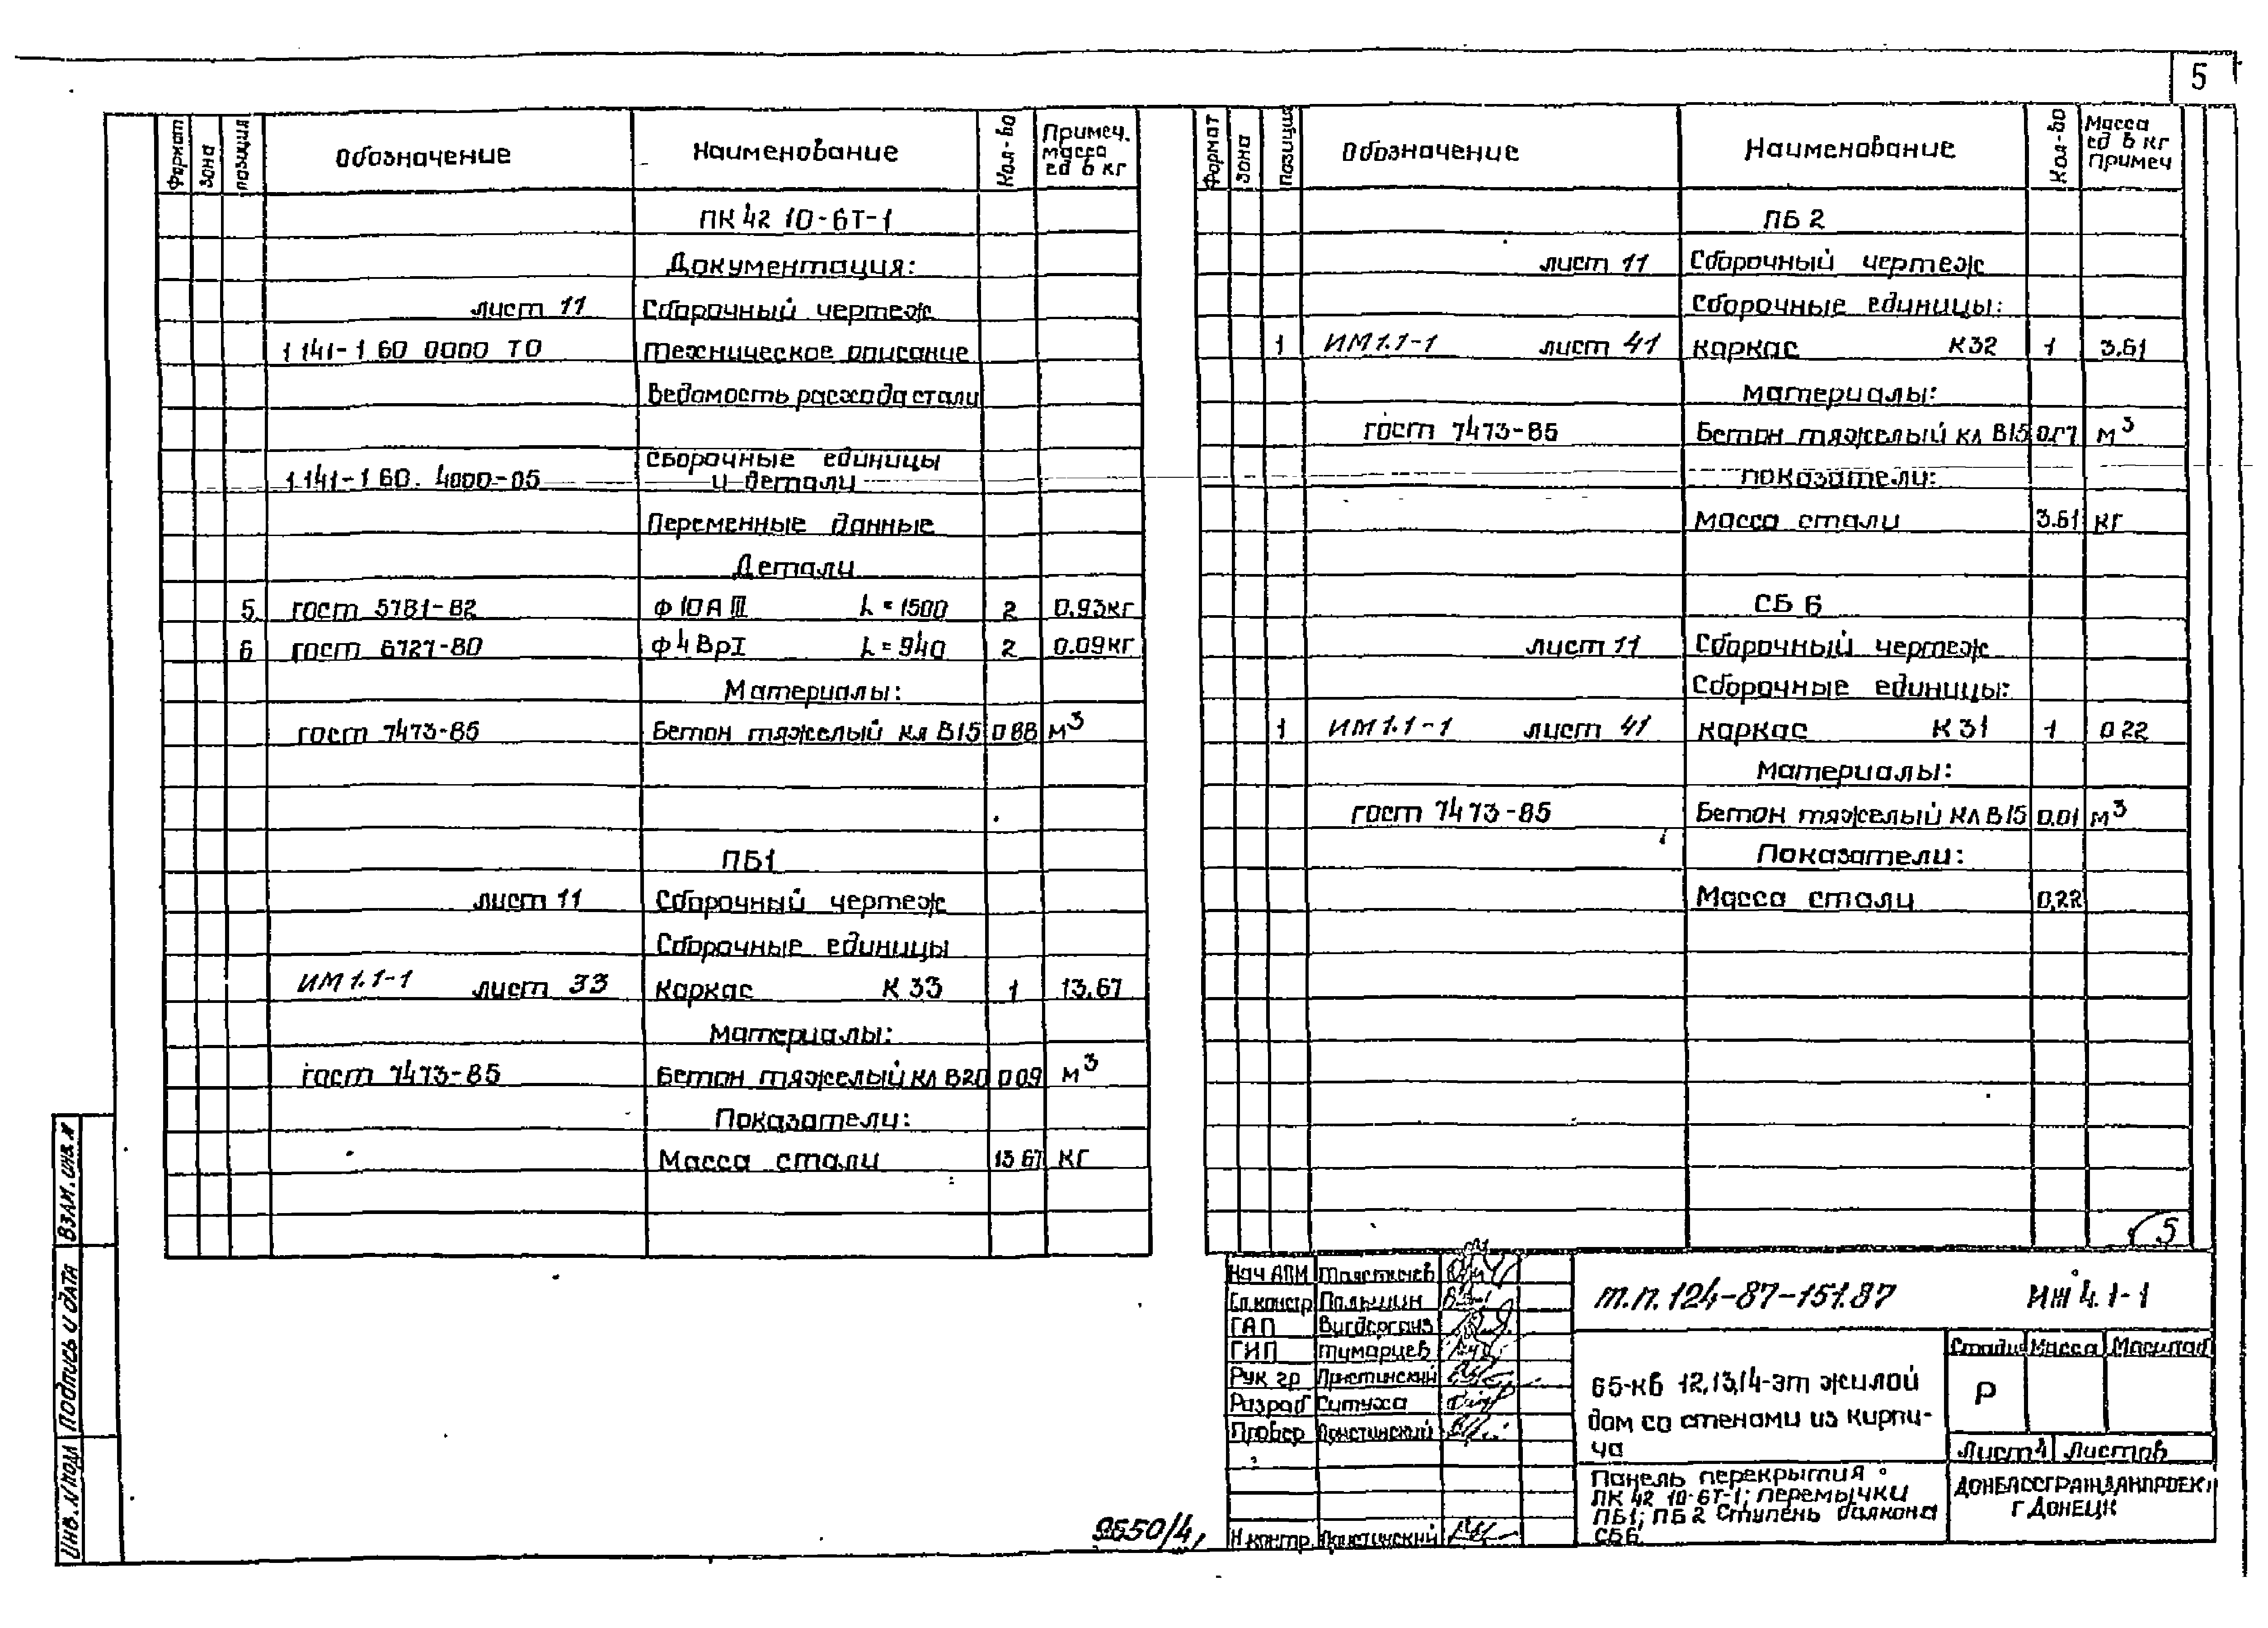 5
Формат Зона Позиция Обозначение Наименование Кол-во Примеч. масса ед в кг
ПК 42 10-6Т-1
Документация:
лист 11 Сборочный чертеж
1 141-1 60 0000 ТО Техническое описание
Ведомость расхода стали
Сборочные единицы
1.141-1 60. 4000-05 и детали
Переменные данные
Детали
5 гост 5781-82 Ф 10 А III L = 1500 2 0.93кг
6 гост 6727-80 Ф 4 ВрI L = 940 2 0.09кг
Материалы:
гост 7473-85 Бетон тяжелый кл В15 0 88 м³
ПБ1
лист 11 Сборочный чертеж
Сборочные единицы
ИМ 1.1-1 лист 33 Каркас К 33 1 13.67
материалы:
гост 7473-85 Бетон тяжелый кл В20 0 09 м³
Показатели:
Масса стали 13 67 кг
Формат Зона Позиция Обозначение Наименование Кол-во Масса ед в кг Примеч
ПБ 2
лист 11 Сборочный чертеж
Сборочные единицы:
1 ИМ 1.1-1 лист 41 каркас К32 1 3.61
материалы:
гост 7473-85 Бетон тяжелый кл В15 м³
показатели:
Масса стали 3.61 кг
СБ 6
лист 11 Сборочный чертеж
Сборочные единицы:
1 ИМ 1.1-1 лист 41 каркас К 31 1 0 22
материалы:
гост 7473-85 Бетон тяжелый кл В15 0.01 м³
Показатели:
Масса стали 0,22
5
Нач АПМ
Гл.констр Палышин
ГАП
ГИП Тумарцев
Рук гр Пристинский
Разраб Ситуха
Провер Пристинский
Н.контр. Пристинский
т.п. 124-87-151.87 ИЖ 4.1-1
65-кв 12,13,14-эт жилой
дом со стенами из кирпи-
ча
Стадия Масса Масштаб
Р
Лист 4 Листов
Панель перекрытия
ПК 42 10-6Т-1; перемычки
ПБ1; ПБ 2 Ступень балкона
СБ6
ДОНБАССГРАЖДАНПРОЕКТ
г ДОНЕЦК
9650/4,
Взам. инв. №
Подпись и дата
Инв. № подл